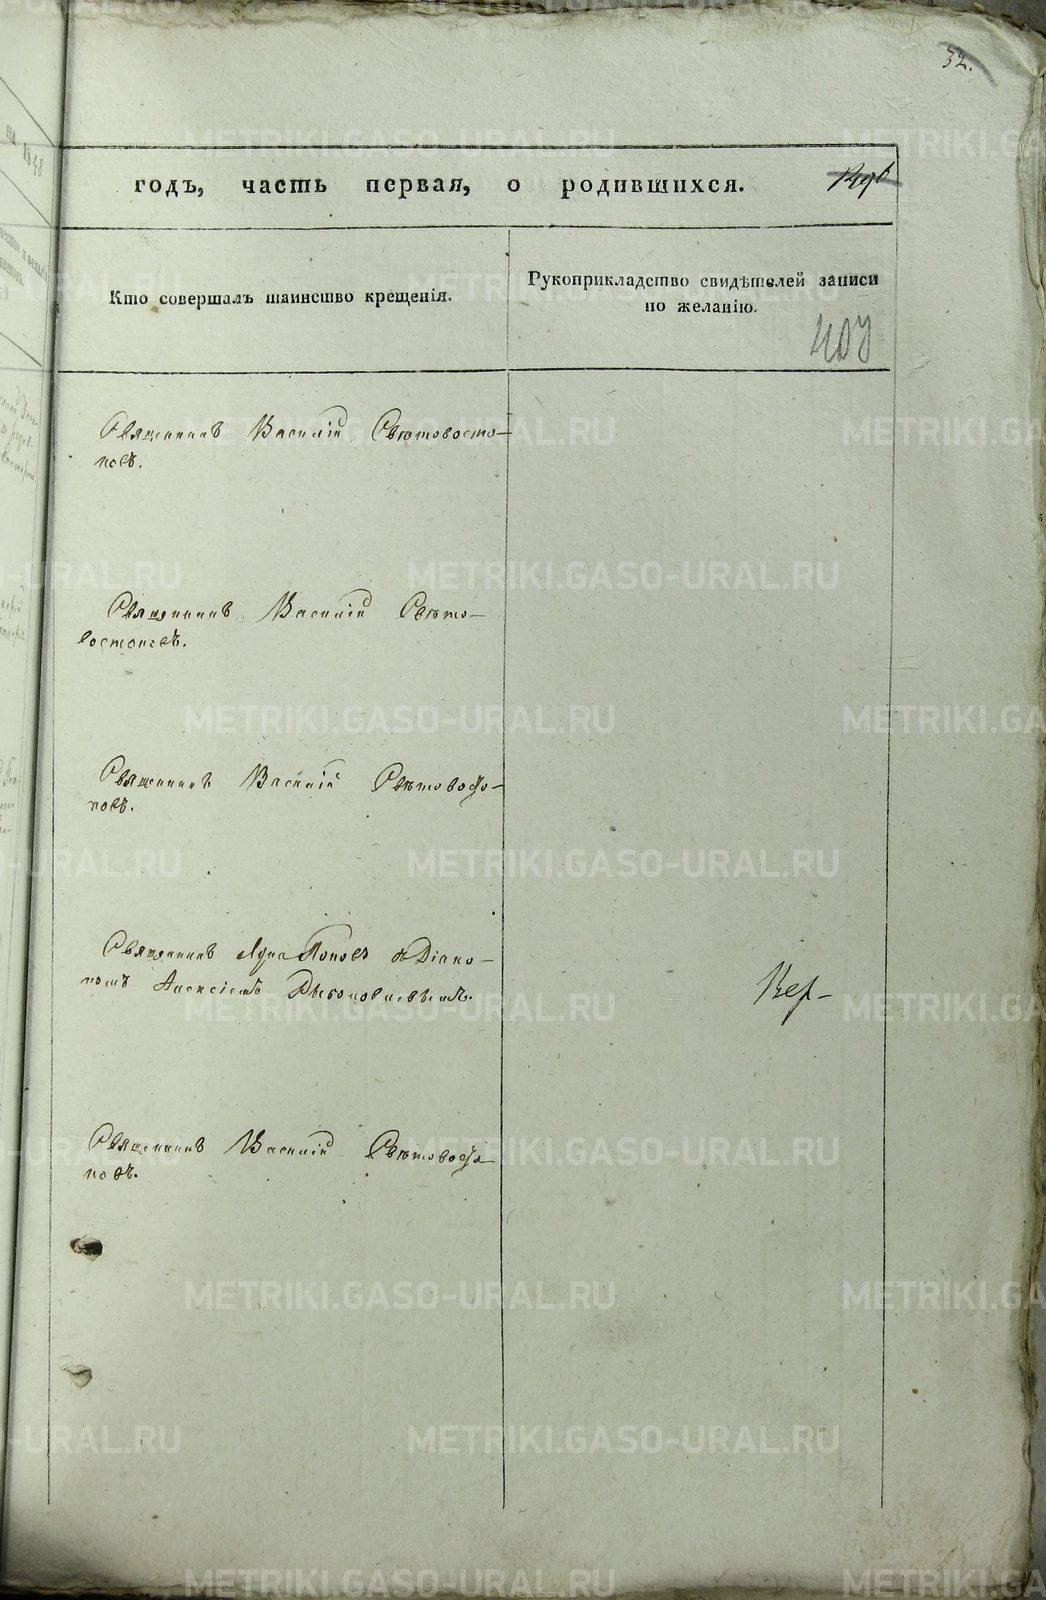 32.
годъ, часть первая, о родившихся.
Кто совершалъ таинство крещенія.
Рукоприкладство свидѣтелей записи
по желанію.
407
Священникъ Василій Свѣтовосто-
ковъ.
Священникъ Василій Свѣто-
востоковъ.
Священникъ Василій Свѣтовосто-
ковъ.
Священникъ Попов съ Діако-
номъ Алексіемъ
Священникъ Василій Свѣтовосто-
ковъ.
METRIKI.GASO-URAL.RU